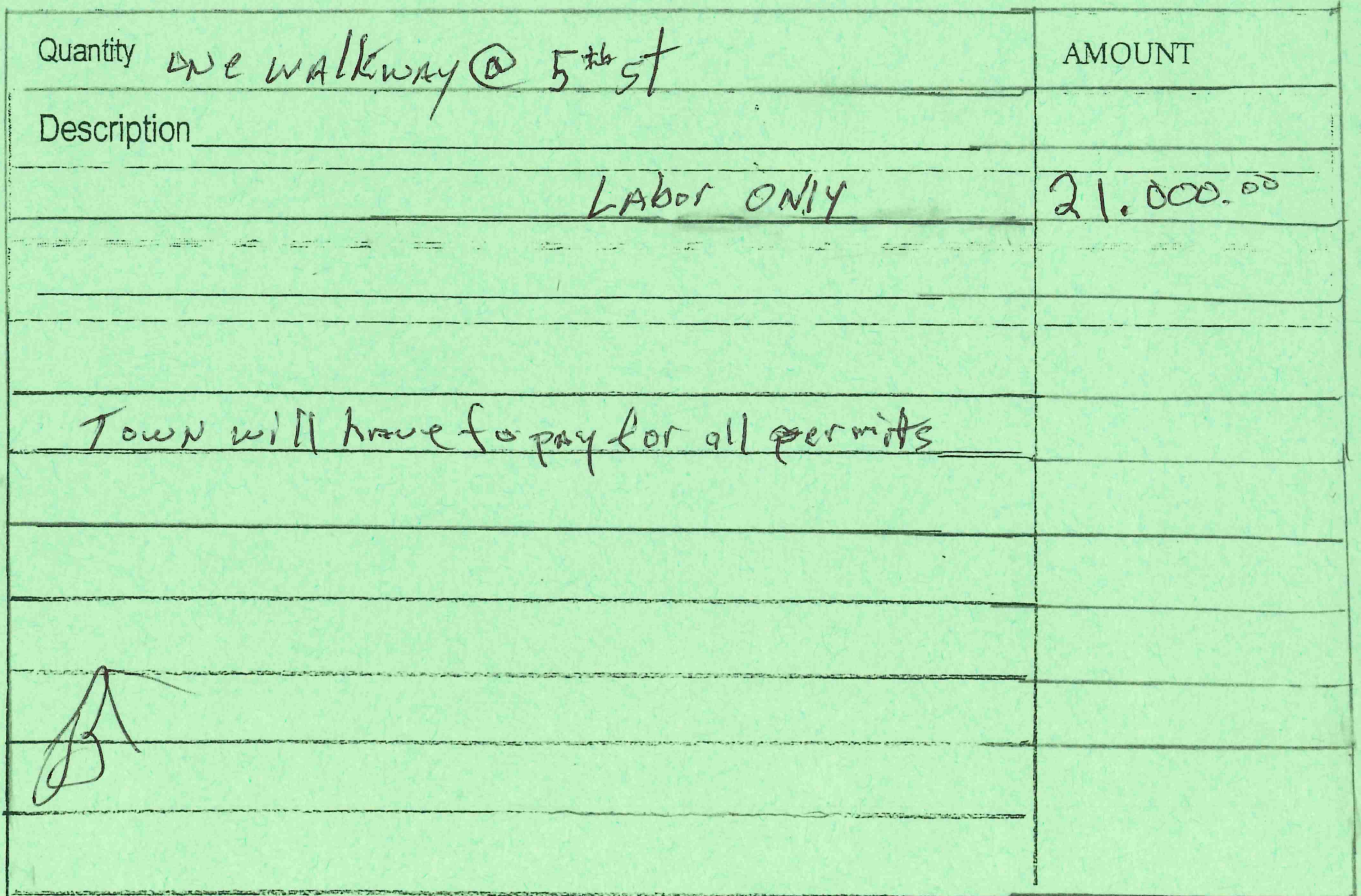 Quantity one walkway @ 5th st AMOUNT
Description
Labor ONly 21.000.00
Town will have to pay for all permits